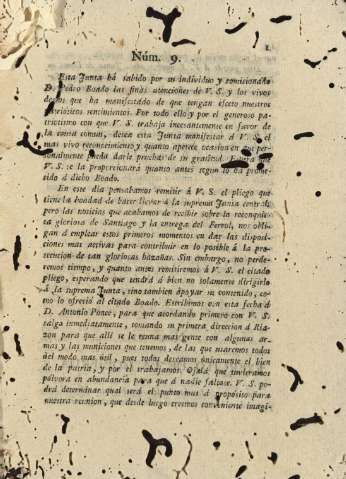 1
Núm. 9.
Esta Junta há sabido por su individuo y comisionado
D. Pedro Boado las finas atenciones de V. S. y los vivos
deseos que ha manifestado de que tengan efecto nuestros
patrioticos sentimientos. Por todo ello y por el generoso pa-
triotismo con que V. S. trabaja incesantemente en favor de
la causa comun, desea esta Junta manifestar á V. S. el
mas vivo reconocimiento y quanto apetece ocasion en que per-
sonalmente pueda darle pruebas de su gratitud. Espera que
V. S. se la proporcionará quanto antes segun lo ha prome-
tido á dicho Boado.
En este dia pensabamos remitir á V. S. el pliego que
tiene la bondad de hacer llevar á la suprema Junta central,
pero las noticias que acabamos de recibir sobre la reconquis-
ta gloriosa de Santiago y la entrega del Ferrol, nos obli-
gan á emplear estos primeros momentos en dar las disposi-
ciones mas activas para contribuir en lo posible á la pro-
teccion de tan gloriosas hazañas. Sin embargo, no perde-
remos tiempo, y quanto antes remitiremos á V. S. el citado
pliego, esperando que tendrá á bien no solamente dirigirlo
á la suprema Junta, sino tambien apoyar su contenido, co-
mo lo ofreció al citado Boado. Escribimos con esta fecha á
D. Antonio Ponce, para que acordando primero con V. S.
salga inmediatamente, tomando su primera direccion á Ria-
zon para que allí se le reuna mas gente con algunas ar-
mas y las municiones que tenemos, de las que usaremos todos
del modo mas util, pues todos deseamos unicamente el bien
de la patria, y por él trabajamos. Ojalá que tuvieramos
pólvora en abundancia para que á nadie faltase. V. S. po-
drá determinar qual será el punto mas á propósito para
nuestra reunion, que desde luego creemos conveniente imagi-